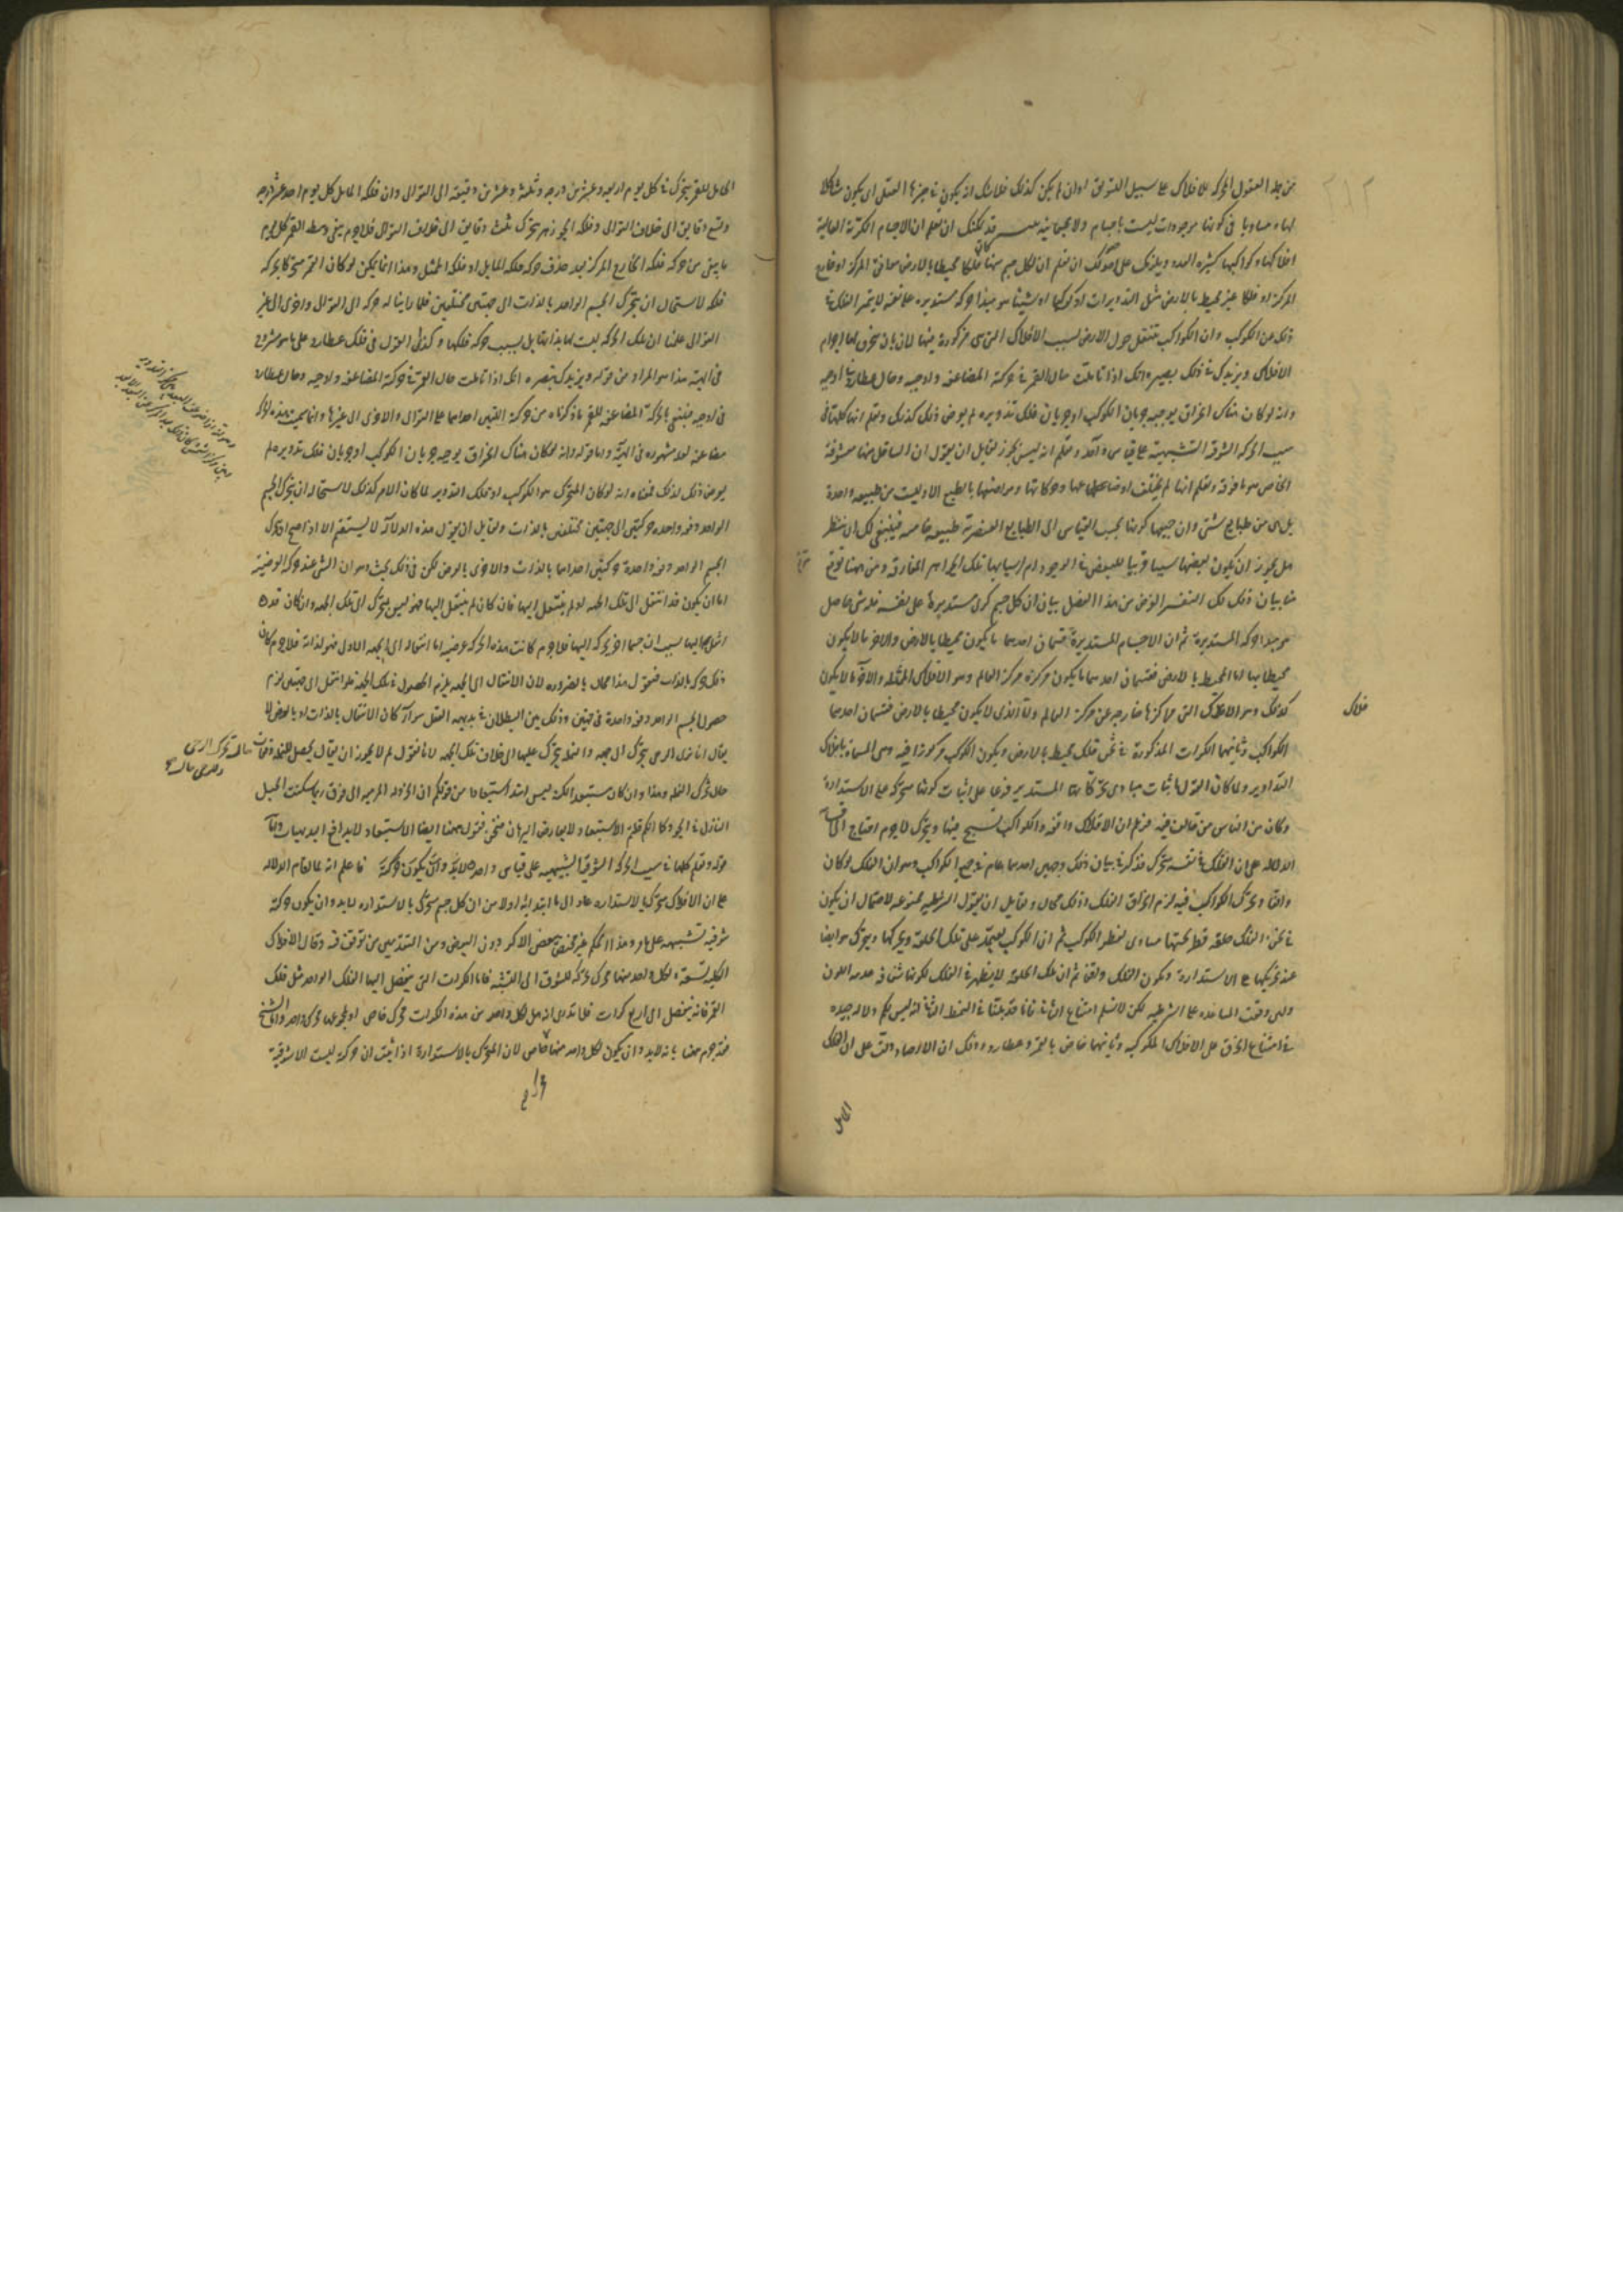 من جملة العقول المحركة للافلاك على سبيل التشويق او ان لم يكن كذلك فلا شك ان يكون في حيزها العقلي اي يكون مشاكلا
لها ومساويا في كونها موجودات ليست باجسام ولا بجسمانية قد يمكنك ان تعلم ان الاجسام الكرية العالية
افلاكها وكواكبها كثيرة العدد ويلزمك على اصولك ان تعلم ان لكل جسم منها كان فلكا محيطا بالارض موافق المركز او خارج
المركز او فلكا غير محيط بالارض مثل التدويرات او كوكبا شيئا هو مبدأ حركة مستديرة على نفسه لا يتميز الفلك في
ذلك عن الكوكب وان الكواكب تنتقل حول الارض بسبب الافلاك التي هي مركوزة فيها لا بان ينخرق لها اجرام
الافلاك ويزيدك في ذلك بصيرة انك اذا تأملت حال القمر في حركته المضاعفة واوجيه وحال عطارد في اوجيه
وانه لو كان هناك انخراق يوجبه جريان الكوكب او جريان فلك تدويره لم يعرض ذلك كذلك وتعلم انها كلها في
سبب الحركة الشوقية التشبيهية على قياس واحد وتعلم انه ليس يجوز لقائل ان يقول ان السافل منها معشوقه
الخاص هو ما فوقه وتعلم انها لم تختلف اوضاعها وحركاتها ومواضعها بالطبع الا وليست من طبيعة واحدة
بل هي من طبايع شتى وان جمعها كونها بحسب القياس الى الطبايع العنصرية طبيعة خامسة فينبغي لك ان تنظر
هل يجوز ان يكون بعضها سببا قريبا للبعض في الوجود ام اسبابها تلك الجواهر المفارقة ومن ههنا توقع
منا بيان ذلك لك التفسير الغرض من هذا الفصل بيان ان كل جسم كري مستدير على نفسه
موجد الحركة المستديرة ثم ان الاجسام المستديرة قسمان احدهما ما يكون محيطا بالارض والاخر ما لا يكون
محيطا بها اما المحيط بالارض فقسمان احدهما ما يكون مركزه مركز العالم وهو الافلاك الممثلة والآخر ما لا يكون
كذلك وهو الافلاك التي مراكزها خارجة عن مركز العالم واما الذي لا يكون محيطا بالارض فقسمان احدهما
الكواكب وثانيهما الكرات المذكورة في ثخن فلك محيط بالارض ويكون الكوكب مركوزا فيه وهي المسماة بافلاك
التداوير ولما كان القول باثبات مبادي حركاتها المستديرة فرعا على اثبات كونها متحركة على الاستدارة
وكان من الناس من خالف فيه فزعم ان الافلاك واقفة والكواكب تسبح فيها وتتحرك لا جرم احتاج الى اقامة
الدلالة على ان الفلك في نفسه متحرك فذكر في بيان ذلك وجهين احدهما عام في جميع الكواكب وهو ان الفلك لو كان
واقفا وتحرك الكواكب فيه لزم انخراق الفلك وذلك محال ولقائل ان يقول الشرطية ممنوعة لاحتمال ان يكون
في ثخن الفلك حلقة قطر ثخنها مساوي لقطر الكوكب ثم ان الكوكب يعتمد على تلك الحلقة ويحركها ويتحرك هو ايضا
عند تحريكها على الاستدارة ويكون الفلك واقفا ثم ان تلك الحلقة لا يظهر في الفلك لكونها شفافة عديمة اللون
ولئن وقعت المساعدة على الشرطية لكن لا نسلم امتناع التالي فانا قد بينا في النمط الثاني انه ليس لكم دلالة جيدة
في امتناع الخرق على الافلاك الكوكبية وثانيهما خاص بالقمر وعطارد وذلك ان الارصاد دلت على ان الفلك
الحامل
فلاك
الحامل للقمر يتحرك في كل يوم اربعة وعشرين درجة وثلثة وعشرين دقيقة الى التوالي وان فلكه المايل كل يوم احد عشر درجة
وتسع دقايق الى خلاف التوالي وفلكه الجوزهر يتحرك ثلث دقايق الى خلاف التوالي فلا جرم يبقى وسط القمر كل يوم
ما يبقى من حركة فلكه الخارج المركز بعد حذف حركة فلكه المايل وفلكه الممثل وهذا انما يمكن لو كان القمر متحركا بحركة
فلكه لاستحالة ان يتحرك الجسم الواحد بالذات الى جهتين مختلفتين فلما راينا له حركة الى التوالي واخرى الى غير
التوالي علمنا ان تلك الحركة ليست لها بذاتها بل بسبب حركة فلكها وكذلك القول في فلك عطارد على ما هو مشروح
في الهيئة هذا هو المراد من قوله ويزيدك بصيرة انك اذا تأملت حال القمر في حركته المضاعفة واوجيه وحال عطارد
في اوجيه فينبغي بالحركة المضاعفة للقمر ما ذكرناه من حركة القمر احدهما على التوالي والاخرى الى غيرها وانما سميت هذه الحركة
مضاعفة لعد مشهور في الهيئة واما قوله وانه لو كان هناك انخراق يوجبه جريان الكوكب او جريان فلك تدويره لم
يعرض ذلك كذلك فمعناه انه لو كان المتحرك هو الكوكب او فلك التدوير لما كان الامر كذلك لاستحالة ان يتحرك الجسم
الواحد دفعة واحدة حركتين الى جهتين مختلفتين بالذات ولقائل ان يقول هذه الدلالة لا يستقيم الا اذا صح تحرك
الجسم الواحد دفعة واحدة حركتين احداهما بالذات والاخرى بالعرض لكن في ذلك بحث وهو ان الشئ عند حركته العرضية
اما ان يكون قد انتقل الى تلك الجهة او لم ينتقل اليها فان كان لم ينتقل اليها فهو ليس يتحرك الى تلك الجهة وان كان قد
انتقل اليها بسبب ان جسما اخر حركه اليها فلا جرم كانت هذه الحركة عرضية اما انتقاله الى الجهة الاولى فهو لذاته فلا جرم كان
ذلك حركة بالذات فنقول هذا محال بالضرورة لان الانتقال الى الجهة يلزم الحصول في تلك الجهة فلو انتقل الى جهتين لزم
حصول الجسم الواحد دفعة واحدة في جهتين وذلك بين البطلان في بديهة العقل سواء كان الانتقال بالذات او بالعرض لا
يقال انا نرى الرحى يتحرك الى جهة والنملة يتحرك عليها الى خلاف تلك الجهة لانا نقول لم لا يجوز ان يقال يحصل للنملة وقفات
حال تحرك النملة وهذا وان كان مستبعدا لكنه ليس اشد استبعادا من قولكم ان الخردلة المرمية الى فوق ربما سكنت الجبل
النازل في الجو وكما انكم قلتم الاستبعاد لا يعارض البرهان فنحن نقول ههنا ايضا الاستبعاد لا يدافع البديهيات واما
قوله وتعلم كلها في سبب الحركة الشوقية التشبيهية على قياس واحد فاعلم انه لما اقام الدلالة
على ان الافلاك متحركة بالاستدارة عاد الى ما ابتدا به اولا من ان كل جسم متحرك بالاستدارة لابد وان يكون حركته
شوقية تشبيهية على ما مر وهذا الحكم غير مختص ببعض الاكر دون البعض ومن المتقدمين من توقف فيه وقال الافلاك
الكلية تسعة ولكل واحد منها محرك يحركه للشوق الى التشبه فاما الكرات التي ينفصل اليها الفلك الواحد مثل فلك
القمر فانه ينفصل الى اربع كرات فلا ندري انه هل لكل واحد من هذه الكرات محرك خاص او لمجموعها محرك واحد واما الشيخ
فقد جزم ههنا بانه لابد وان يكون لكل واحد منها خاص لان المتحرك بالاستدارة اذا ثبت ان حركته ليست الا شوقية